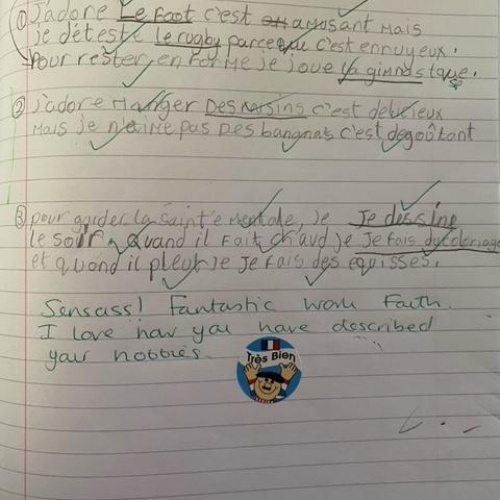 ① J'adore Le Foot c'est amusant mais
je déteste le rugby parceque c'est ennuyeux.
Pour rester en forme je joue la gimnastque.
② J'adore manger Des raisins c'est delicieux
mais je n'aime pas Des bangnas c'est degoûtant
③ pour garder la saint'e mentale, je Je dessine
le soir, Quand il fait chaud je Je fais du
et quand il pleut je Je fais des equisses.
Sensass! Fantastic work Faith.
I love how you have described
your hobbies.
Très Bien